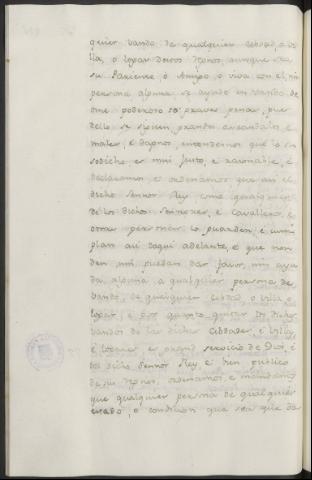 quier vando de qualquier cibdad, o vi
lla, o logar destos regnos, aunque sea
su Pariente, o Amigo, o viva con el, nin
persona alguna se ayude en vando de
ome poderoso so graves penas, que
dello se siguen grandes escandalos, e
males, e dapnos, entendemos que lo su
sodicho es mui justo, e razonable, e
declaramos, e ordenamos que asi el
dicho Sennor Rey como
de los dichos Sennores, e Cavalleros, e
otras personas lo guarden, e cum
plan asi daqui adelante, e que non
den, nin puedan dar favor, nin ayu
da alguna a qualquier persona de
vando, de qualquier cibdad, o villa, o
logar, e por quanto quitar los dichos
vandos de las dichas Cibdades, e Villas,
e logares es servicio de Dios, e
del dicho Sennor Rey e bien publico
de sus regnos, ordenamos, e mandamos
que qualquier persona de qualquier
estado, o condicion que sea que da